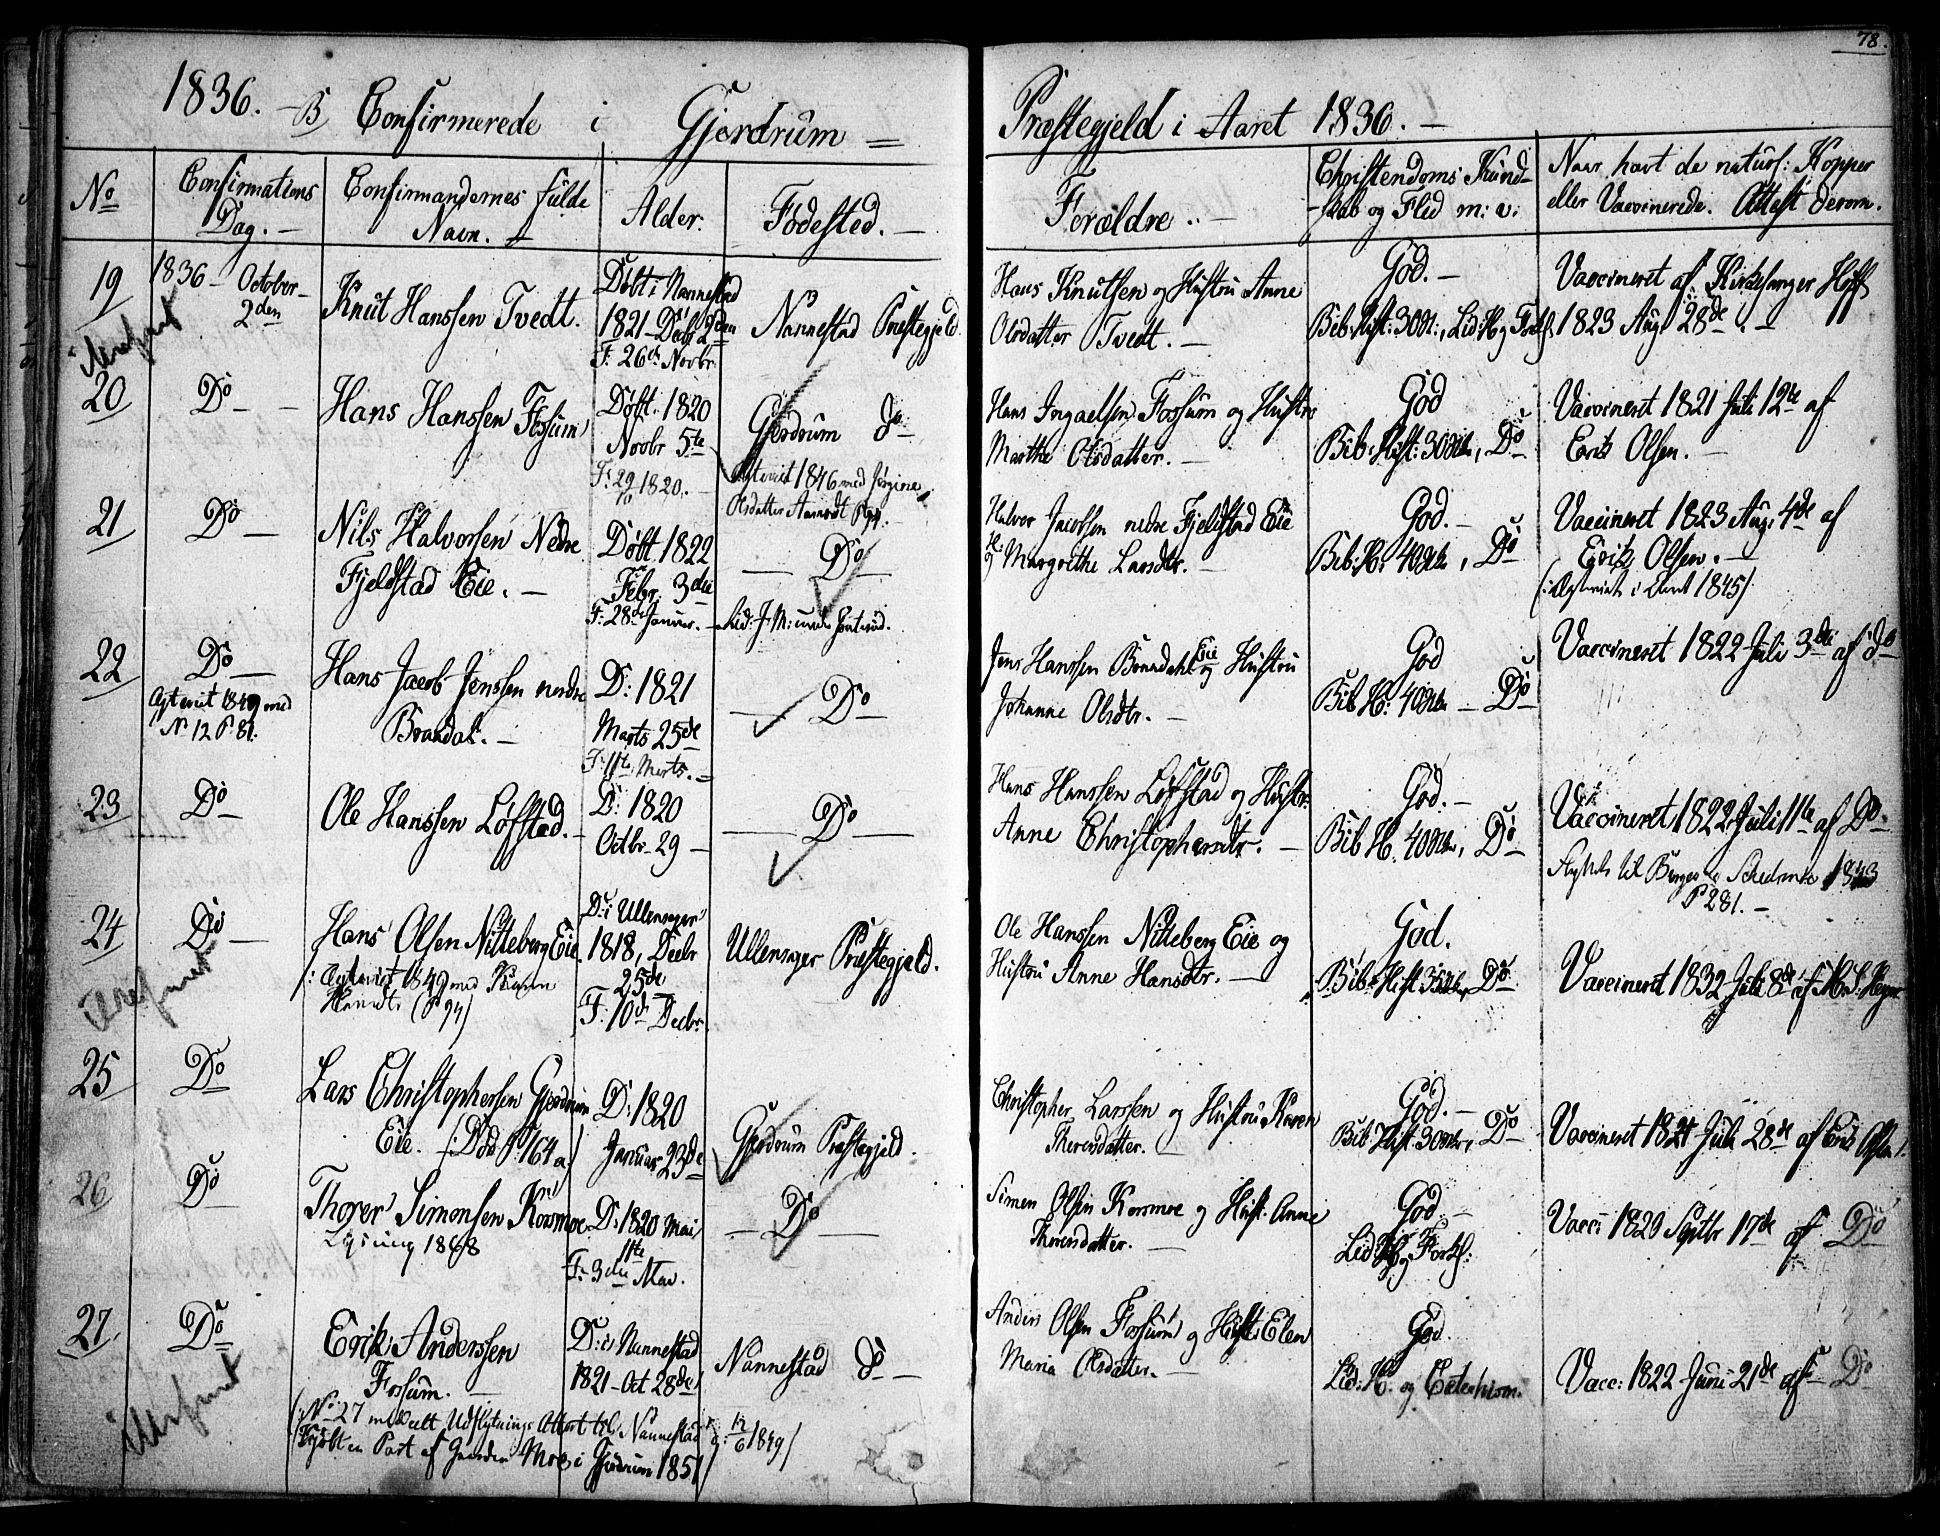 78.
1836. B Confirmerede i Gjerdrum = Præstegjeld i Aaret 1836. —
No
Confirmations Dag. —
Confirmandernes fulde Navn. —
Alder.
Fødested. —
Forældre. —
Christendoms Kund-
-skab og Flid m: v:
Naar havt de naturl: Kopper
eller Vaccinerede. Attest derom.
19
1836 — October —
2den
Knut Hanssen Tvedt.
Døbt i Nannestad
1821 Decbr 2den
F: 26de Novbr.
Nannestad Præstegjeld
Hans Knutsen og Hustru Anne
Olsdatter Tvedt. —
God. —
Bib: Hist: 30 , Lid: H og Forkl.
Vaccineret af Kirkesanger Hoff
1823 Aug 28de. —
20
Do — —
Hans Hanssen Fossum
Døbt. 1820
Novbr 5te
F: 29/10 1820. —
Gjerdrum do
Ægteviet 1846 med Jørgine
Olsdatter
Hans Ingvelsen Fossum og Hustru
Marthe Olsdatter. —
God
Bib: Hist: 30 , Do
Vaccineret 1821 Juli 12te af
Erik Olsen. —
21
Do —
Nils Halvorsen Nedre
Fjeldstad Eie. —
Døbt 1822
Febr. 3die
F: 28de Januar. —
— Do —
Halvor Jacobsen nedre Fjeldstad Eie
og H: Margrethe Larsdtr. —
God. —
Bib: H: 40 , Do
Vaccineret 1823 Aug. 4de af
Erik Olsen. —
(: Ægteviet i Aaret 1845 /
22
Do —
Ægteviet 1849 med
No 12 P. 81.
Hans Jacob Jenssen nedre
Brandal. —
D: 1821
Marts 25de
F: 11te Marts. —
— Do —
Jens Hanssen Brandahl Eie og Hustru
Johanne Olsdtr. —
God
Bib H: 40 — Do
Vaccineret 1822 Juli 3die af do
23
Do
Ole Hanssen Løfstad. —
D: 1820
Octbr 29 —
— Do —
Hans Hanssen Løfstad og Hustr:
Anne Christophersdtr. —
God. —
Bib H. 40 , Do
Vaccineret 1822 Juli 11te af Do
til Berger i Schedsmoe 1843
P 281. —
24
Do —
Hans Olsen Nitteberg Eie.
/: Ægteviet 1849 med Karen
Hansdtr (P 94)
D: i Ullensager
1818, Decbr
25de
F: 10de Decbr.
Ullensager Præstegjeld.
Ole Hanssen Nitteberg Eie og
Hustru Anne Hansdtr. —
God.
Bib: Hist: 35 Do
Vaccineret 1832 Juli 8de af
25
Do
Lars Christophersen Gjerdrum
Eie. (: Død P. 164 a)
D: 1820
Januar 23de
Gjerdrum Præstegjeld.
Christopher Larssen og Hustru Karen
Thorersdatter. —
God. —
Bib: Hist: 30 , Do
Vaccineret 1821 Juli 28de af Erik Olsen.
26
Do
Thorer Simensen Kosmoe
Lysning 1848
D: 1820 Mai
11te
F: 3die Mai.
— Do —
Simen Olsen Kosmoe og Hust: Anne
Thorersdatter. —
God. —
Lid: H og Forkl:
Vacci: 1820 Septbr 17de af Do
27
Do
Erik Anderssen
Fossum. —
D: i Nannestad
1821 — Oct 28de
Nannestad do —
Anders Olsen Fossum og Hustr: Elen
Maria Olsdatter. —
God.
Lid: H. og Catechism.
Vacc: 1822 Juni 21de af Do
(: No 27 meddelt Udflytnings Attest til Nannestad 1849 /
Kjøbt en Part af Gaarden Moe i Gjerdrum 1851 /